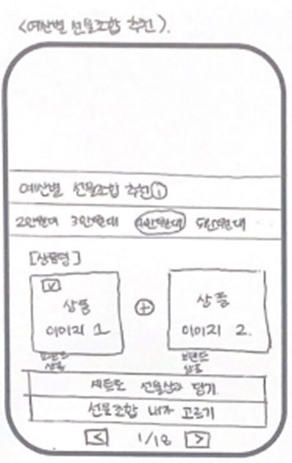 <예산별 선물조합 추천>.
예산별 선물조합 추천 i
2만원대 3만원대 4만원대 5만원대
[상품명]
V
상품
이미지 1
+
상품
이미지 2.
브랜드
상품
브랜드
상품
세트로 선물상자 담기
선물조합 내가 고르기
< 1/12 >